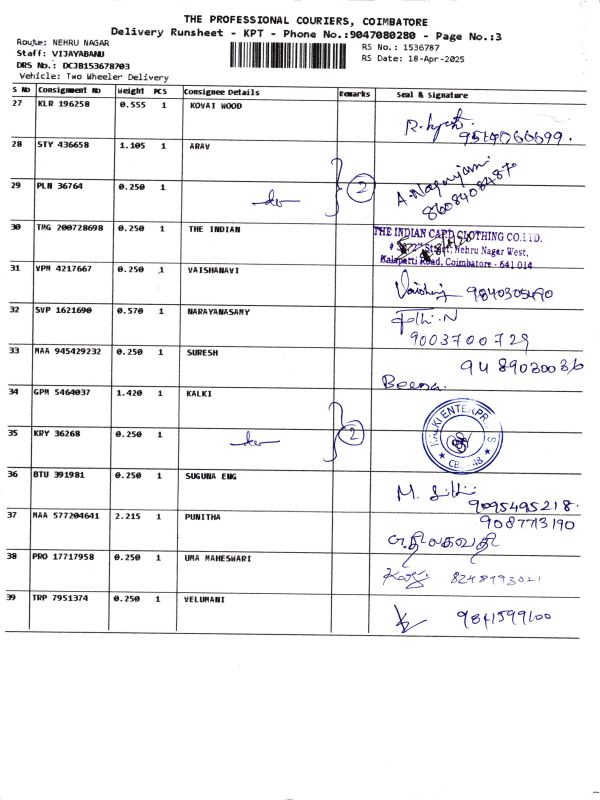 THE PROFESSIONAL COURIERS, COIMBATORE
Delivery Runsheet - KPT - Phone No.:9047080280 - Page No.:3
Route: NEHRU NAGAR
RS No. : 1536787
Staff: VIJAYABANU
RS Date: 18-Apr-2025
DRS No.: DCJB153678703
Vehicle: Two Wheeler Delivery
S No Consignment No Weight PCS Consignee Details Remarks Seal & Signature
27 KLR 196258 0.555 1 KOVAI WOOD
28 STY 436658 1.105 1 ARAV
A. Nagarjani
86084084870
29 PLN 36764 0.250 1 do 2
30 TMG 200728698 0.250 1 THE INDIAN
THE INDIAN CARD CLOTHING CO.LTD.
Street, Nehru Nagar West,
Kalapatti Road, Coimbatore - 641 014
31 VPM 4217667 0.250 1 VAISHANAVI
9840305490
32 SVP 1621690 0.570 1 NARAYANASAMY
9003700729
33 MAA 945429232 0.250 1 SURESH
9489030036
Beena.
34 GPM 5464037 1.420 1 KALKI
KALKI ENTERPRISES
35 KRY 36268 0.250 1 do 2
36 BTU 391981 0.250 1 SUGUNA ENG
9095495218
37 MAA 577204641 2.215 1 PUNITHA
908773190
திலகவதி
38 PRO 17717958 0.250 1 UMA MAHESWARI
8248793021
39 TRP 7951374 0.250 1 VELUMANI
9841599100